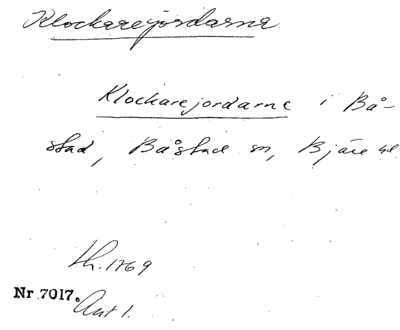 Klockarejordarna
Klockarejordarne i Bå-
stad, Båstad sn, Bjäre hd
Lh. 1769
Nr 7017.
Akt 1.